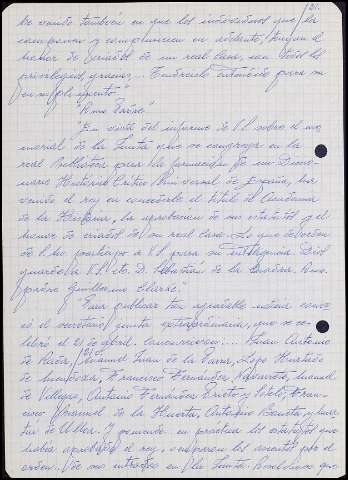 21.
ha venido también en que los individuos que la
componen y compusieren en adelante, tengan el
honor de criados de su real casa, con todos los
privilegios, gracias... Tendreislo entendido para su
cumplimiento."
"Rmo Padre:
"En vista del informe de V.I. sobre el me
morial de la Junta que se congrega en la
real Bibliotheca para la formación de un Diccio-
nario Histórico Crítico Universal de España, ha
venido el rey en concederle el título de Academia
de la Historia, la aprobación de sus estatutos y el
honor de criados de su real casa. Lo que de orden
de S.M. participo a V.I. para su inteligencia. Dios
guarde a V.I. etc. D. Sebastián de la Cuadra. Rmo.
padre Guillermo Clarke."
"Para publicar tan agradable noticia convo
có el secretario junta extraordinaria, que se ce-
lebró el 21 de abril. Concurrieron... Juan Antonio
de Rada, Manuel Juan de la Parra, Lope Hurtado
de Mendoza, Francisco Fernández Navarrete, Manuel
de Villegas, Antonio Fernández Prieto y Sotelo, Fran-
cisco Manuel de la Huerta, Antonio Bauista, y Mar
tín de Ulloa. Y poniendo en práctica los estatutos que
había aprobado el rey, ocuparon los asientos por el
orden... de sus entradas en la Junta. Resolvióse que